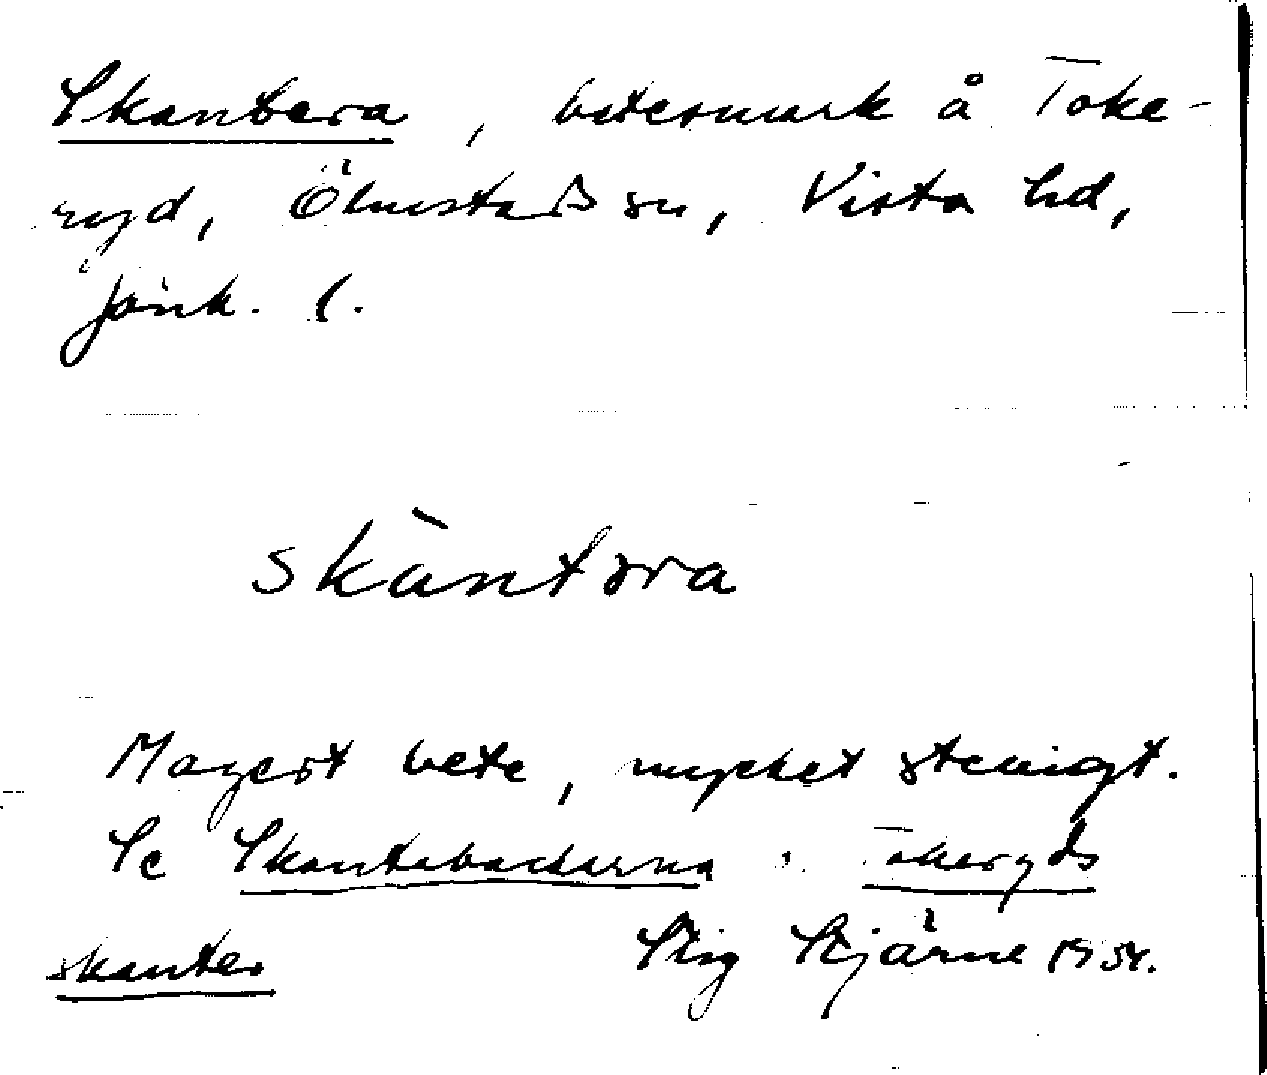 Skantera, betesmark å Toke-
ryd, Ölmstads sn, Vista hd,
Jönk. l.
skàntəra
Magert bete, mycket stenigt.
Se Skantebackarna o. Tokeryds
skanter Stig Stjärne 1954.